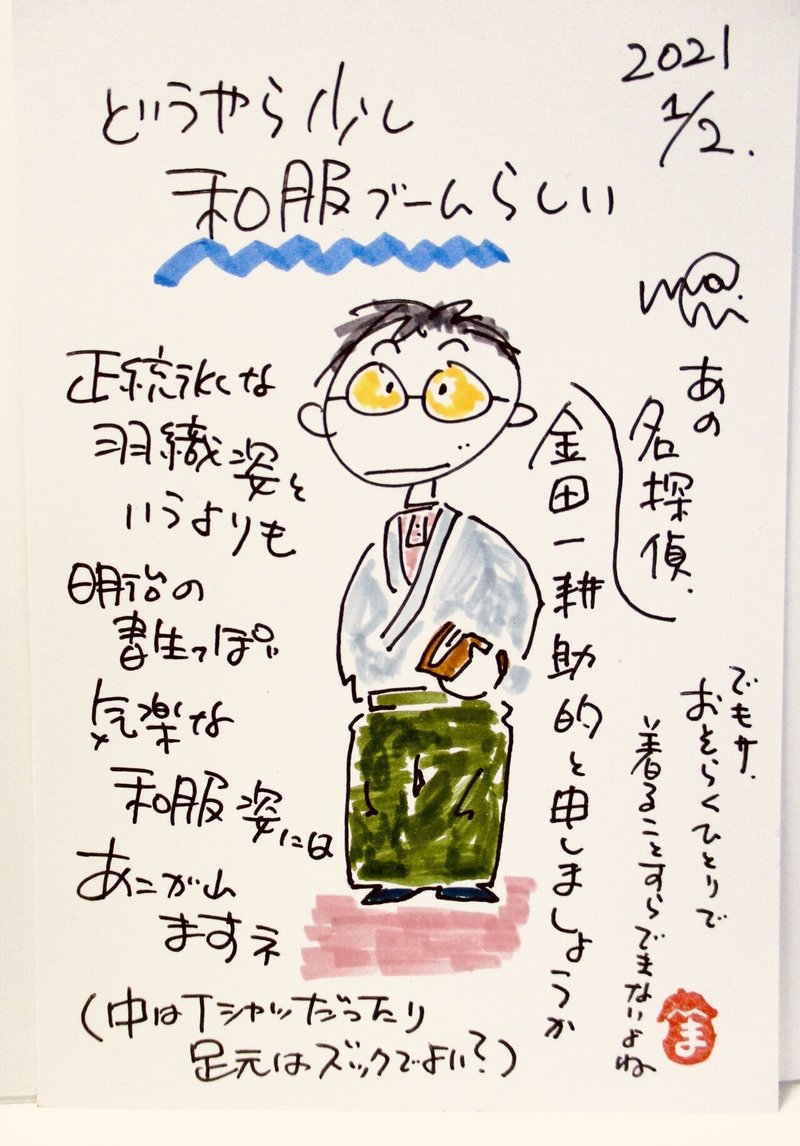 2021
1/2.
どうやら少し
和服ブームらしい
mami
正統派な
羽織姿と
いうよりも
明治の
書生っぽい
気楽な
和服姿には
あこがれ
ますネ
(中はTシャツだったり
足元はズックでよい?)
あの
名探偵.
金田一耕助的と申しましょうか
でもサ.
おそらくひとりで
着ることすらできないよね
ま